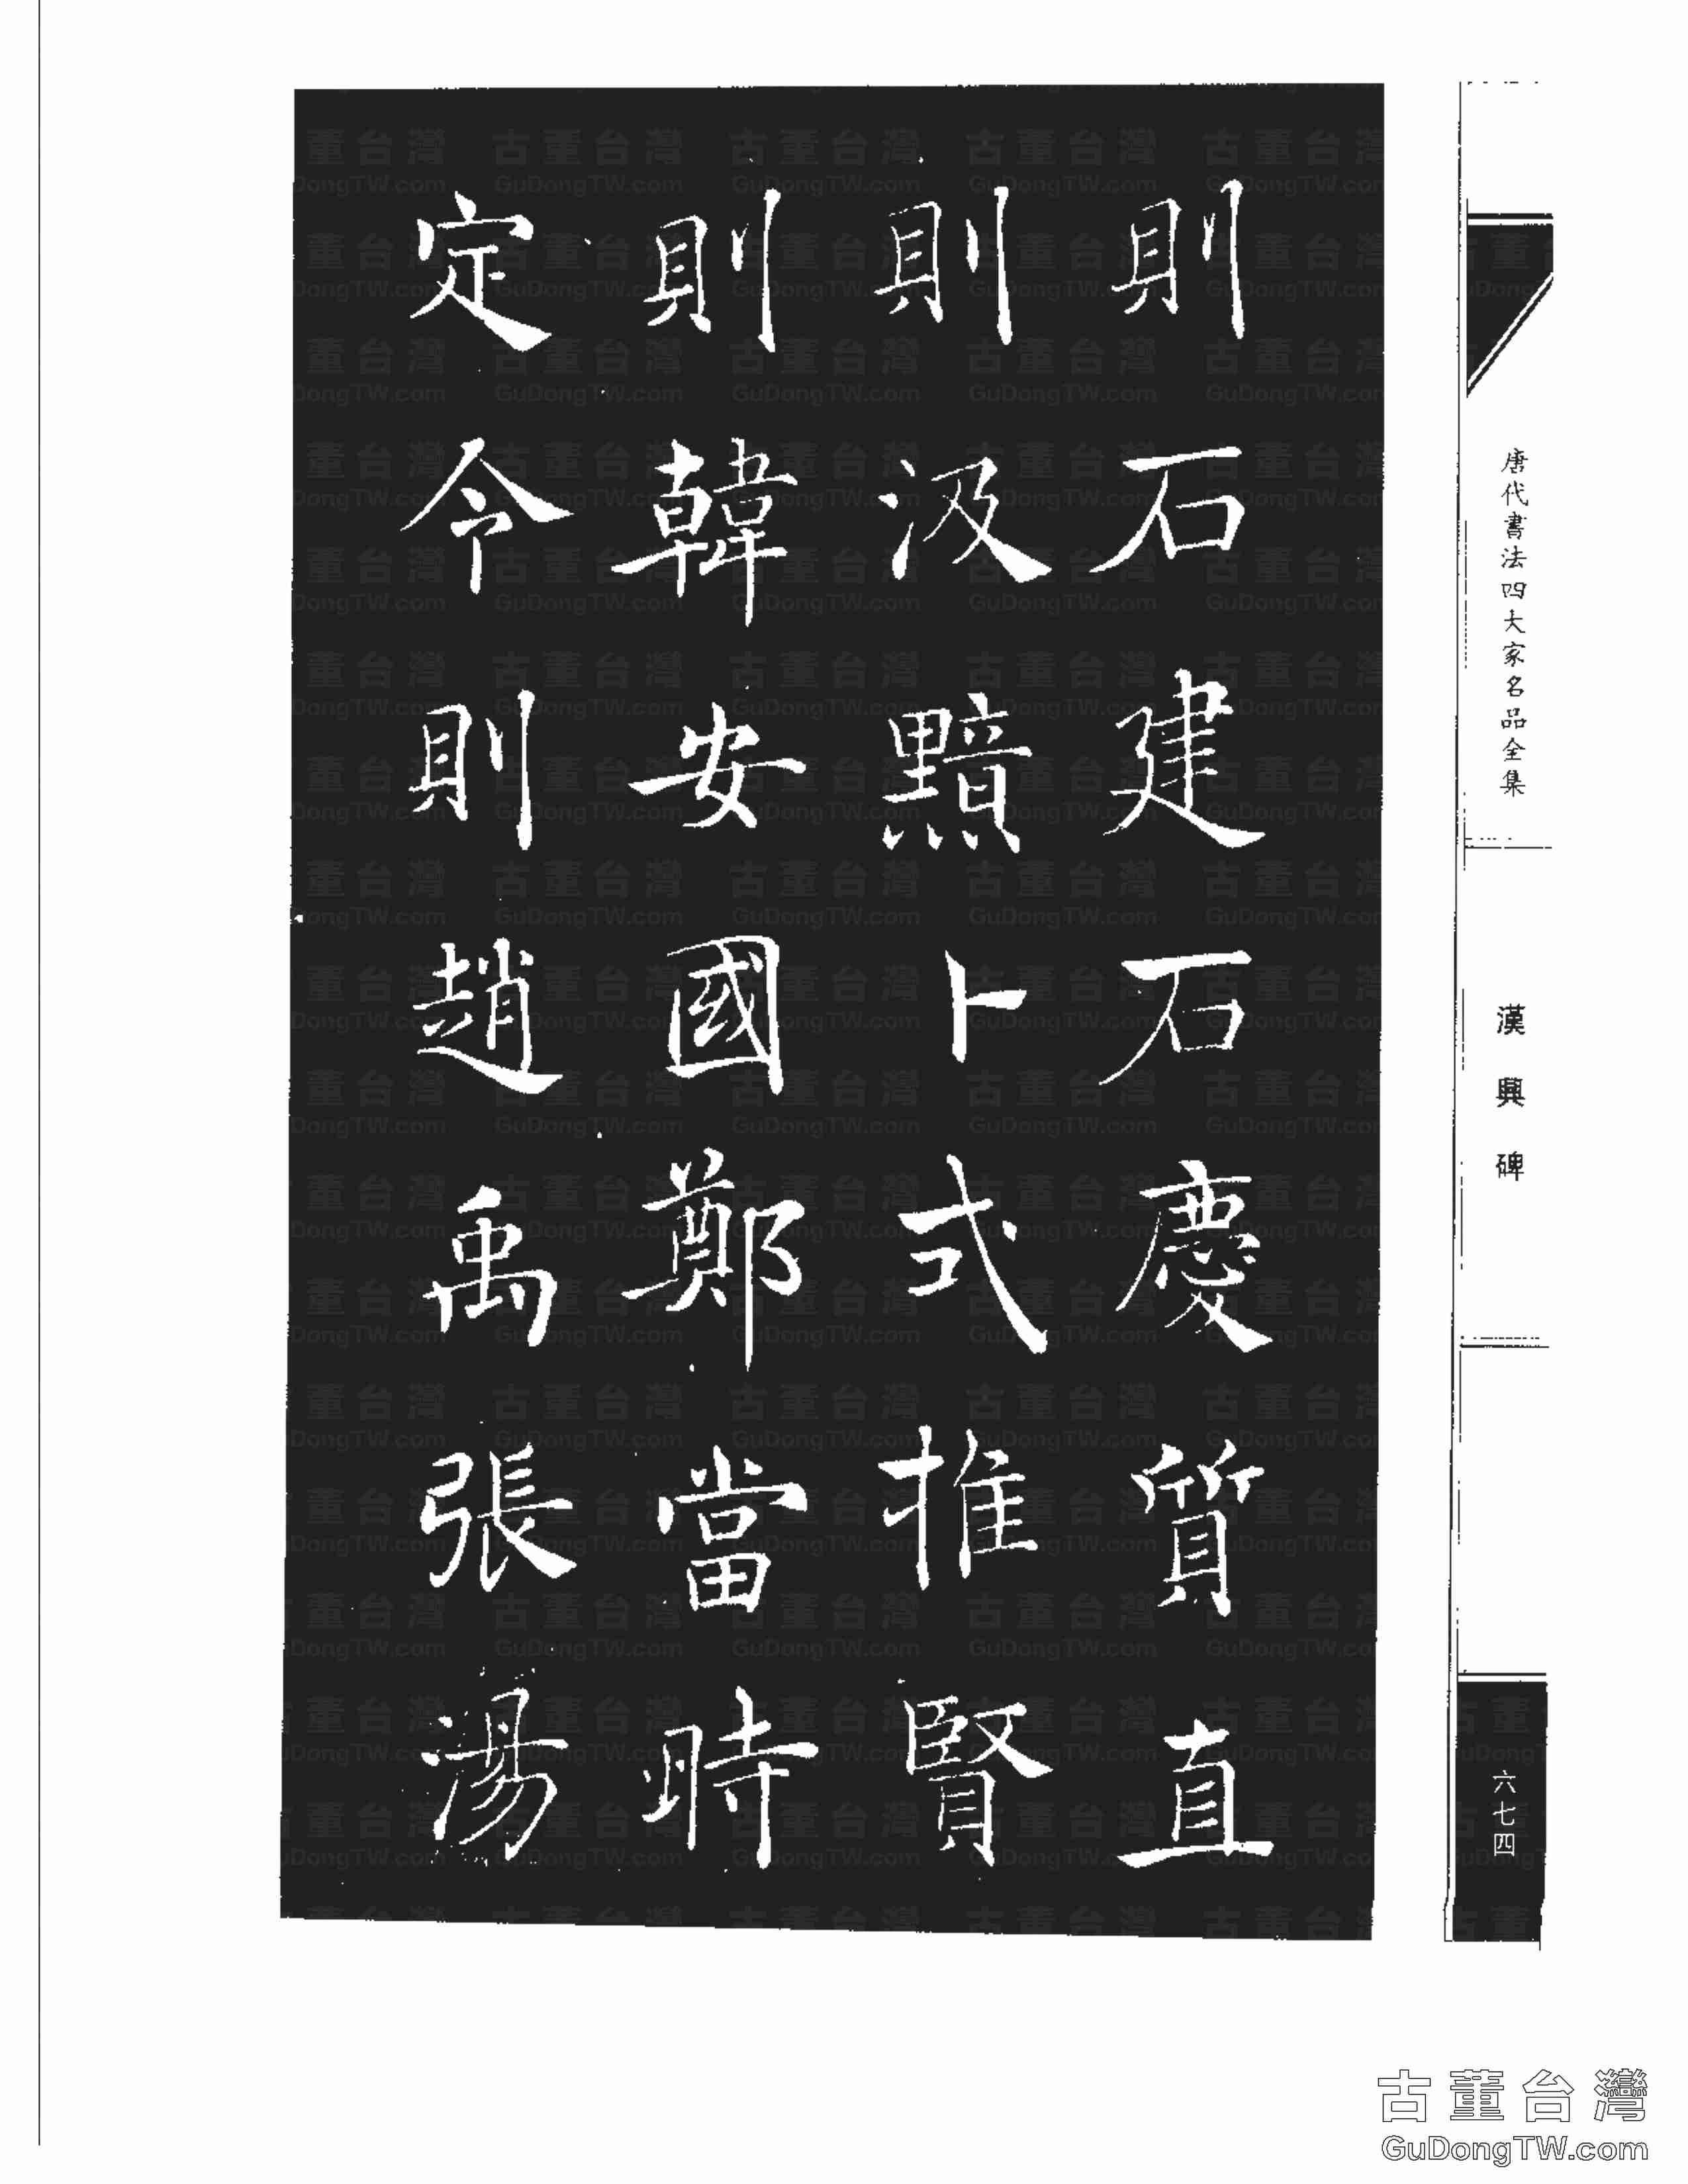 唐代書法四大家名品全集
漢興碑
六七四
則石建石慶質直
則汲黯卜式推賢
則韓安國鄭當時
定令則趙禹張湯
古董台灣
GuDongTW.com